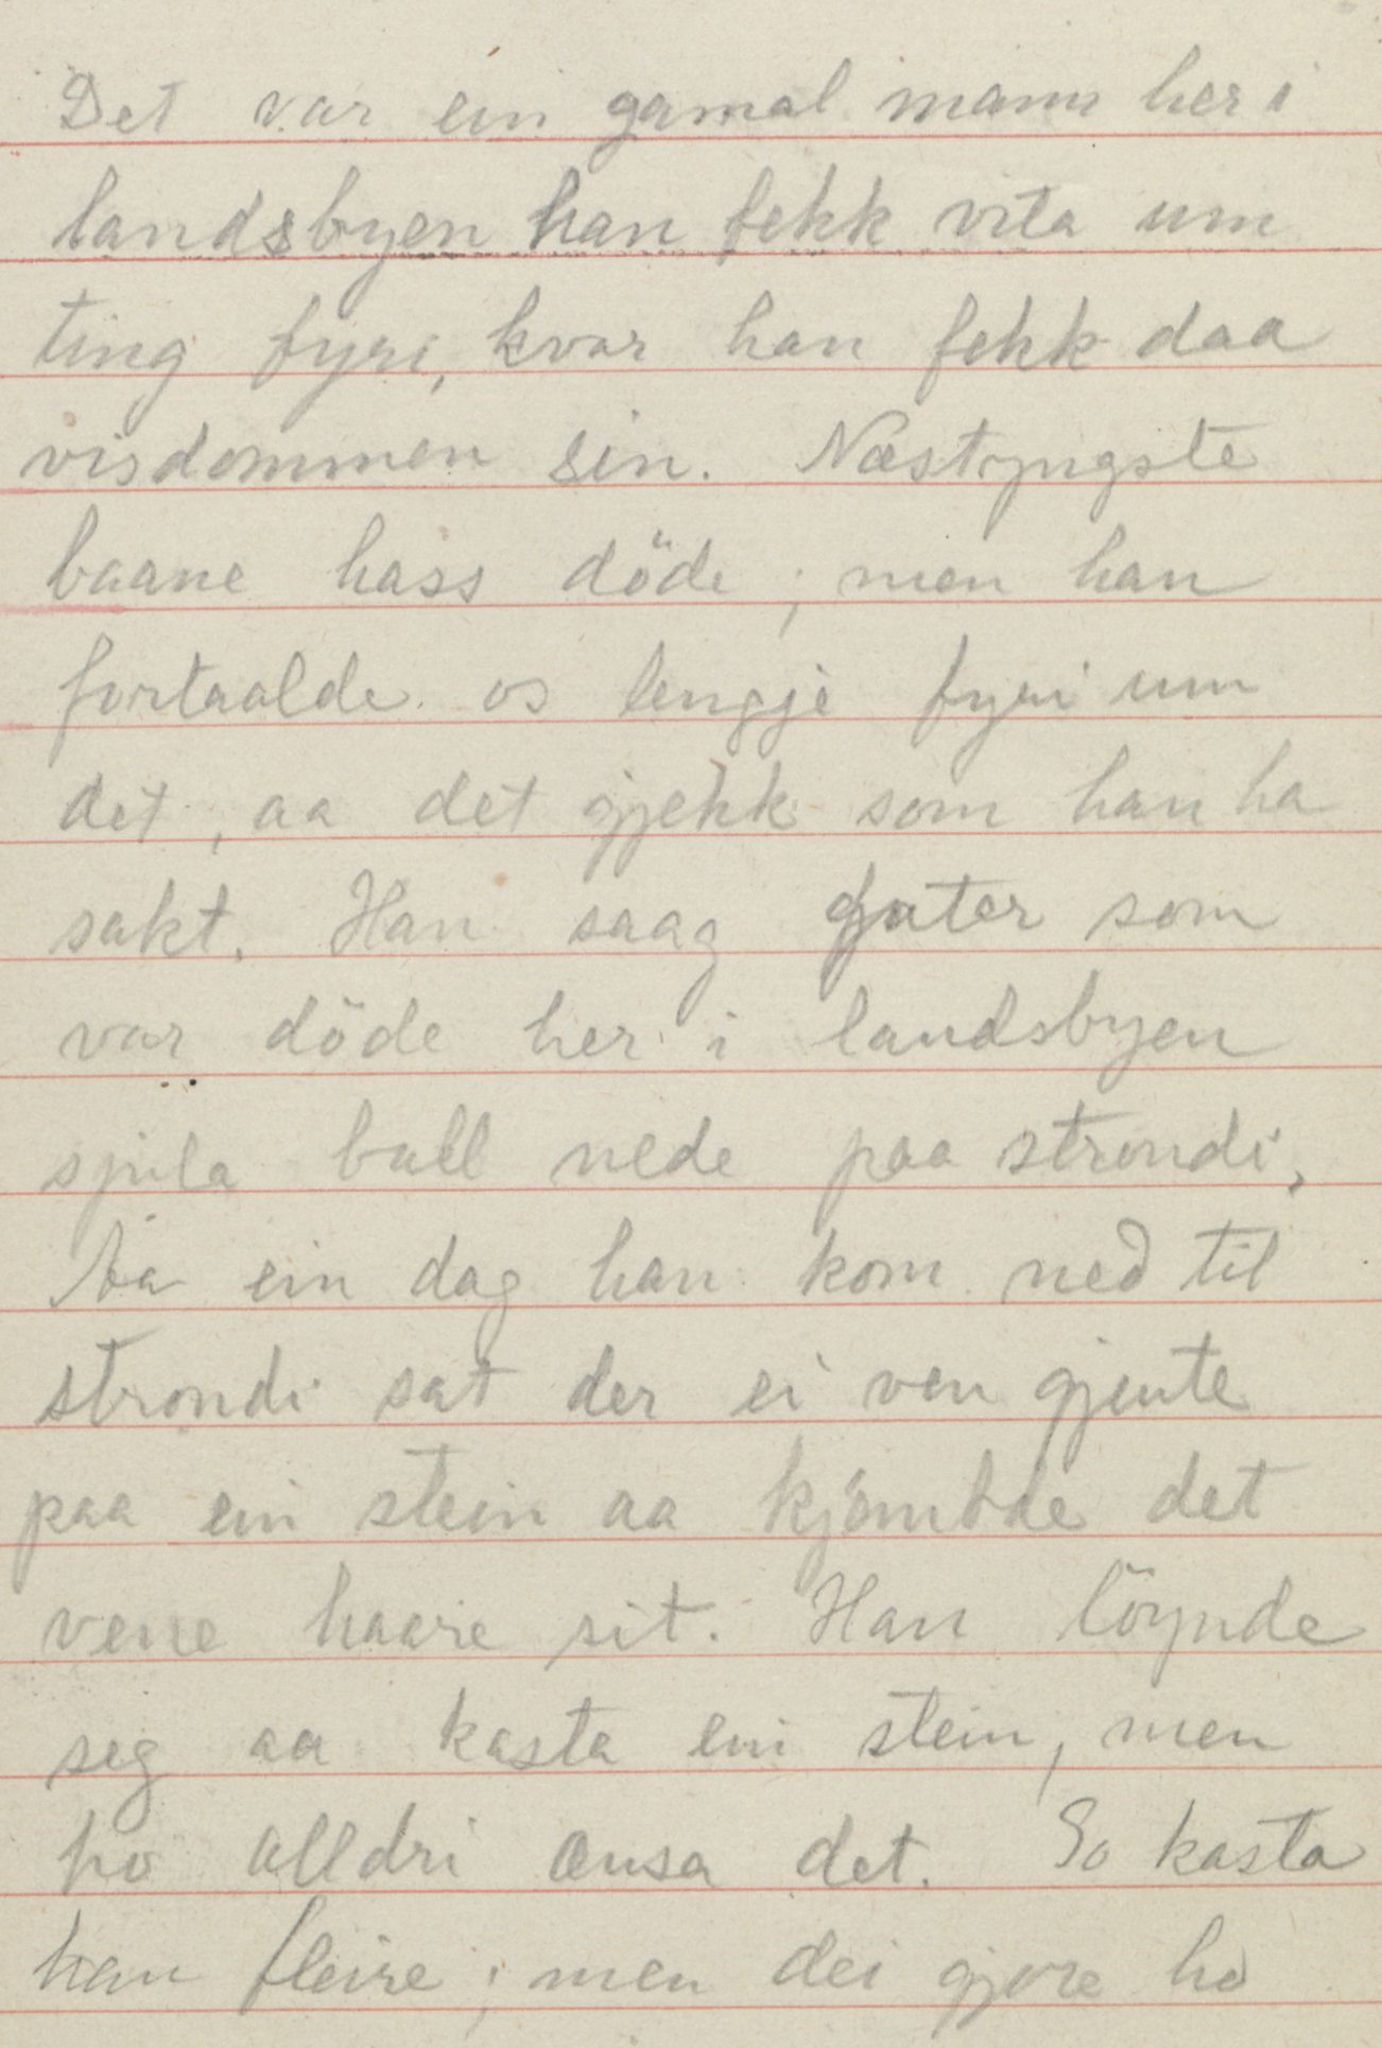 Det var ein gamal mann her i
landsbyen han fekk vita um
ting fyri, kvar han fekk daa
visdommen sin. Næstyngste
baane hass döde; men han
fortaalde os lengje fyri um
det, aa det gjekk som han ha
sakt. Han saag guter som
var döde her i landsbyen
spila ball nede paa strondi,
Aa ein dag han kom ned til
strondi sat der ei ven gjente
paa ein stein aa kjembde det
vene haare sit. Han löynde
seg aa kasta ein stein, men
ho alldri ensa det. So kasta
han fleire; men dei gjore ho